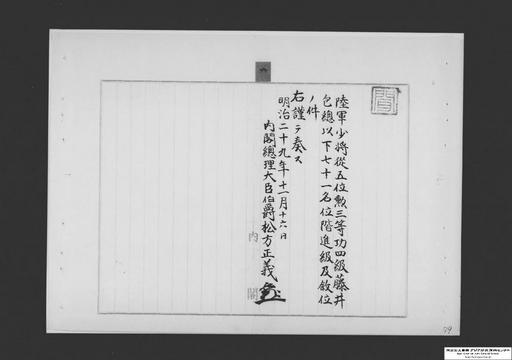 聞
陸軍少将從五位勲三等功四級藤井
包總以下七十一名位階進級及敘位
ノ件
右謹テ奏ス
明治二十九年十一月十六日
内閣總理大臣伯爵松方正義
内閣
79